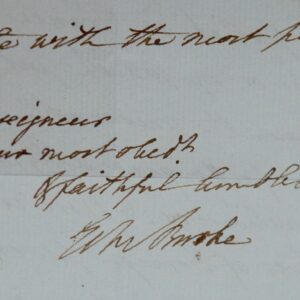 with the most
seigneur
most obedt
& faithful humble
Edm Burke